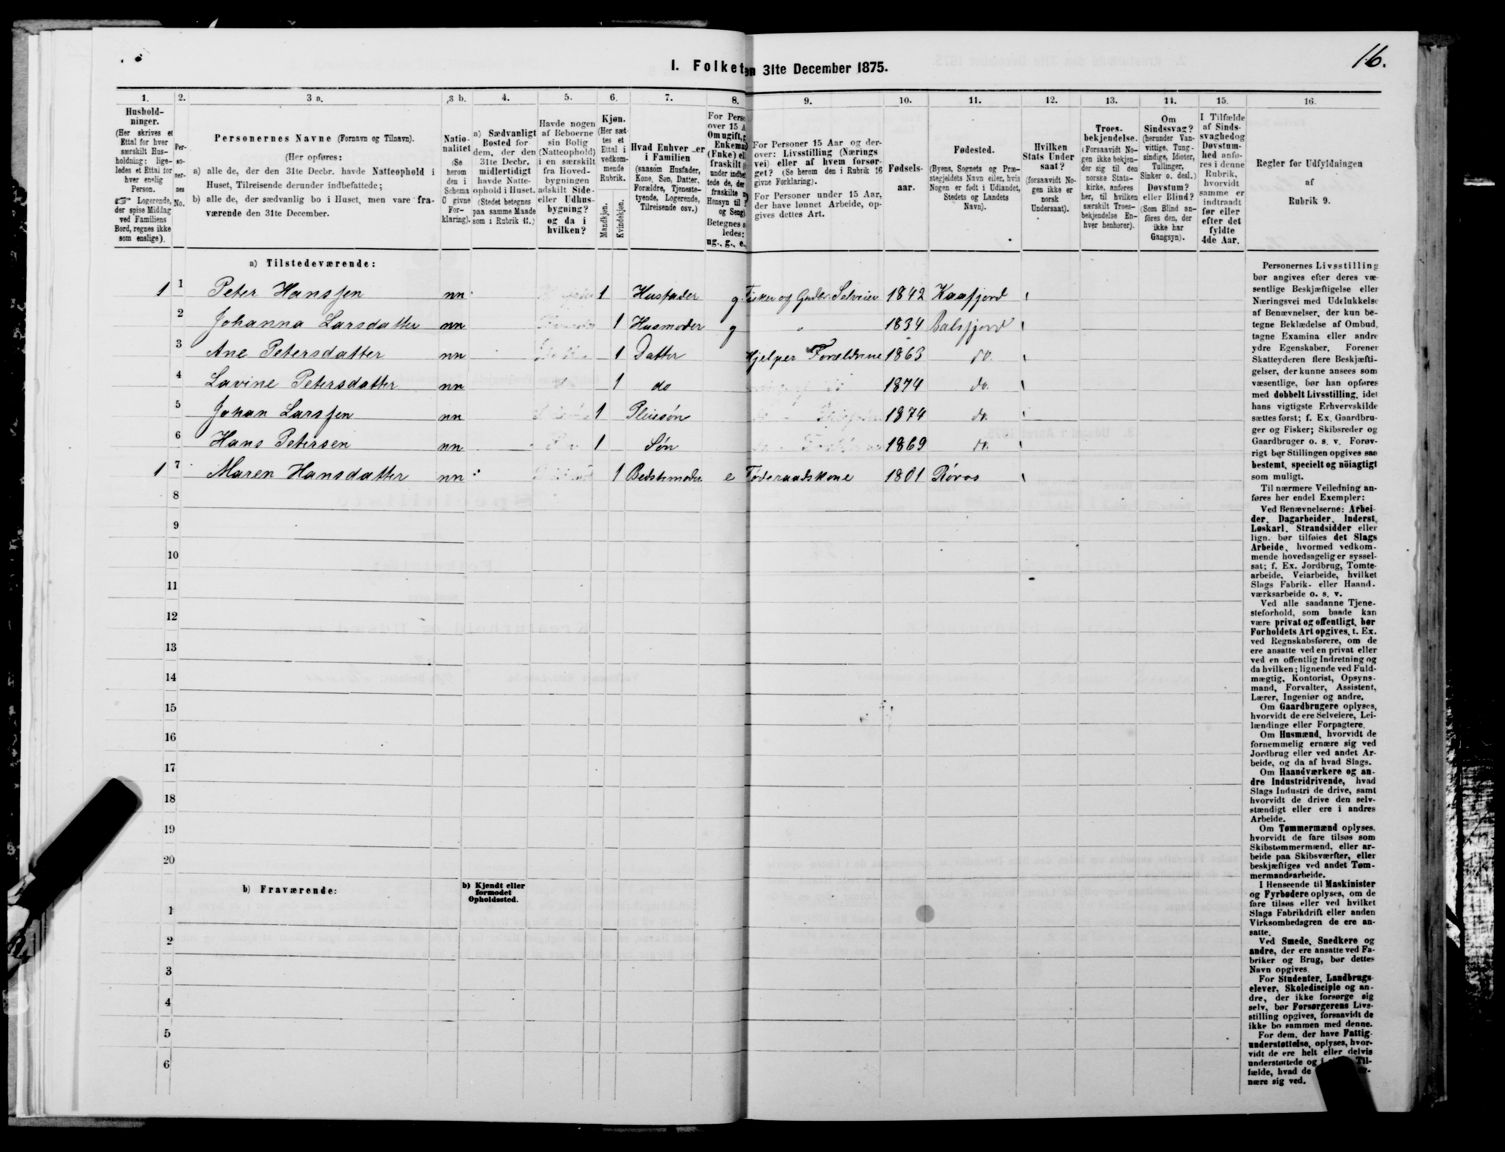 16.
I. Folket
en 31te December 1875.
1. 2. 3 a. 3 b. 4. 5. 6. 7. 8. 9. 10. 11. 12. 13. 14. 15. 16.
Hushold-
ninger.
(Her skrives et
Ettal for hver
særskilt Hus-
holdning; lige-
ledes et Ettal for
hver enslig
Person.
Logerende,
der spise Middag
ved Familiens
Bord, regnes ikke
som enslige).
Per-
so-
ner-
nes
No.
Personernes Navne (Fornavn og Tilnavn).
(Her opføres:
a) alle de, der den 31te Decbr. havde Natteophold i
Huset, Tilreisende derunder indbefattede;
b) alle de, der sædvanlig bo i Huset, men vare fra-
værende den 31te December.
Natio-
nalitet
(Se
herom
den i
Schema
O givne
For-
klaring).
a) Sædvanligt
Bosted for-
dem, der den
31te Decbr.
midlertidigt
havde Natte-
ophold i Huset.
(Stedet betegnes
paa samme Maade
som i Rubrik 11.)
Havde nogen
af Beboerne
sin Bolig
(Natteophold)
i en særskilt
fra Hoved-
bygningen
adskilt Side-
eller Udhus-
bygning?
og da i
hvilken?
Kjøn.
(Her sæt-
tes et
Ettal i
vedkom-
mende
Rubrik.
Mandkjøn.
Kvindekjøn.
Hvad Enhver er
i Familien
(saasom Husfader,
Kone, Søn, Datter,
Forældre, Tjeneste-
tyende, Logerende,
Tilreisende osv.)
For Perso
over 15 A
Om ugift, g
Enkeman
(Enke) el
fraskilt
ug., g., e.,
For Personer 15 Aar og der-
over: Livsstilling (Nærings
vei) eller af hvem forsør-
get? (Se herom den i Rubrik 16
givne Forklaring).
For Personer under 15 Aar,
der have lønnet Arbeide, op-
gives dettes Art.
Fødsels-
aar.
Fødested.
(Byens, Sognets og Præ-
stegjeldets Navn eller, hvis
Nogen er født i Udlandet,
Stedets og Landets
Navn).
Hvilken
Stats Under
saat?
(forsaavidt No-
gen ikke er
norsk
Undersaat).
Troes-
bekjendelse.
(Forsaavidt No-
gen ikke bekjen-
der sig til den
norske Stats-
kirke, anføres
her, til hvilken
særskilt Troes-
bekjendelse En-
hver henhører).
Om
Sindssvag?
(herunder Van-
vittige, Tung-
sindige, Idioter,
Tullinger,
Sinker o. desl.)
Døvstum?
eller Blind?
(Som Blind an-
føres den, der
ikke har
Gangsyn).
I Tilfælde
af Sinds-
svaghed og
Døvstum-
hed anfø-
res i denne
Rubrik,
hvorvidt
samme er
indtraadt
før eller
efter det
fyldte
4de Aar.
Regler for Udfyldningen
af
Rubrik 9.
a) Tilstedeværende:
1 1 Peter Hanssen nn 1 Husfader g Fisker og Gaardbr. Selveier 1842 Kaafjord
2 Johanna Larsdatter nn 1 Husmoder g " 1834 Balsfjord
3 Ane Petersdatter nn 1 Datter Hjelper Forældrene 1863 do.
4 Lavine Petersdatter nn 1 do 1874 do.
5 Johan Larssen nn 1 Pleiesøn 1874 do.
6 Hans Petersen nn 1 Søn 1869 do.
1 7 Maren Hansdatter nn 1 Bedstemoder e Føderaadskone 1801 Røros
8
9
10
11
12
13
14
15
16
17
18
19
20
b) Fraværende:
b) Kjendt eller
formodet
Opholdssted.
1
2
3
4
5
6
Personernes Livsstilling
bør angives efter deres væ-
sentlige Beskjæftigelse eller
Næringsvei med Udelukkelse
af Benævnelser, der kun be-
tegne Beklædelse af Ombud,
tagne Examina eller andre
ydre Egenskaber. Forener
Skatteyderen flere Beskjæfti-
gelser, der kunne ansees som
væsentlige, bør han opføres
med dobbelt Livsstilling, idet
hans vigtigste Erhvervskilde
sættes først; f. Ex. Gaardbru-
ger og Fisker; Skibsreder og
Gaardbruger o. s. v. Forøv-
rigt bør Stillingen opgives saa
bestemt, specielt og nøiagtigt
som muligt.
Til nærmere Veiledning an-
føres her endel Exempler:
Ved Benævnelserne: Arbei-
der, Dagarbeider, Inderst,
Løskarl, Strandsidder eller
lign. bør tilføies det Slags
Arbeide, hvormed vedkom-
mende hovedsagelig er syssel-
sat; f. Ex. Jordbrug, Tomte-
arbeide, Veiarbeide, hvilket
Slags Fabrik- eller Haand-
værksarbeide o. s. v.
Ved alle saadanne Tjene-
steforhold, som baade kan
være privat og offentligt, bør
Forholdets Art opgives, t. Ex.
ved Regnskabsførere, om de
ere ansatte ved en privat eller
ved en offentlig Indretning og
da hvilken; lignende ved Fuld-
mægtig, Kontorist, Opsyns-
mand, Forvalter, Assistent,
Lærer, Ingeniør og andre.
Om Gaardbrugere oplyses,
hvorvidt de ere Selveiere, Lei-
lændinge eller Forpagtere.
Om Husmænd, hvorvidt de
fornemmelig ernære sig ved
Jordbrug eller ved andet Ar-
beide, og da af hvad Slags.
Om Haandværkere og an-
dre Industridrivende, hvad
Slags Industri de drive, samt
hvorvidt de drive den selv-
stændigt eller ere i andres
Arbeide.
Om Tømmermænd oplyses,
hvorvidt de fare tilsøs som
Skibstømmermænd, eller ar-
beide paa Skibsværfter, eller
beskjæftiges ved andet Tøm-
mermandsarbeide.
I Henseende til Maskinister
og Fyrbødere oplyses, om de
fare tilsøs eller ved hvilket
Slags Fabrikdrift eller anden
Virksomhedsgren de ere an-
satte.
Ved Smede, Snedkere og
andre, der ere ansatte ved Fa-
briker og Brug, bør dettes
Navn opgives.
For Studenter, Landbrugs-
elever, Skoledisciple og an-
dre, der ikke forsørge sig
selv, bør Forsørgerens Livs-
stilling opgives, forsaavidt de
ikke bo sammen med denne.
For dem, der have Fattig-
understøttelse, oplyses, hvor-
vidt de ere helt eller delvis
understøttede og i Til-
fælde, hvad de
nære sig ved.